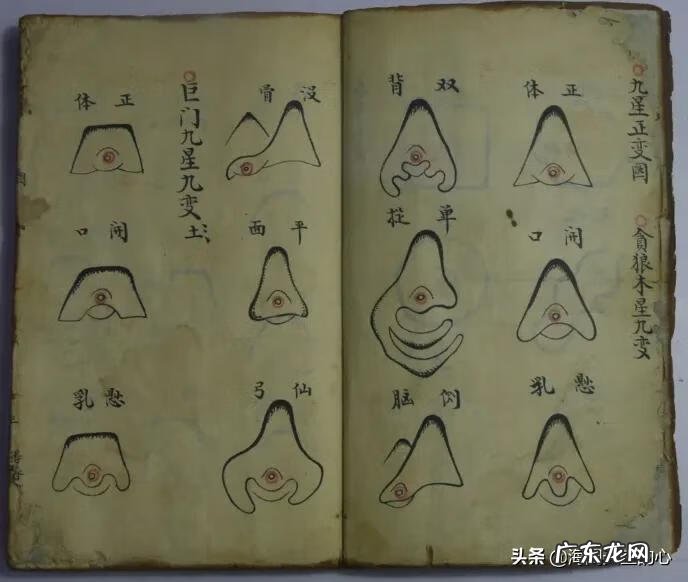 九星正变图
貪狼木星九变
正体
開口
悬乳
双背
单
侧脑
没骨
平面
仙弓
巨门九星九变 土
正体
開口
悬乳
头条
广东龙网